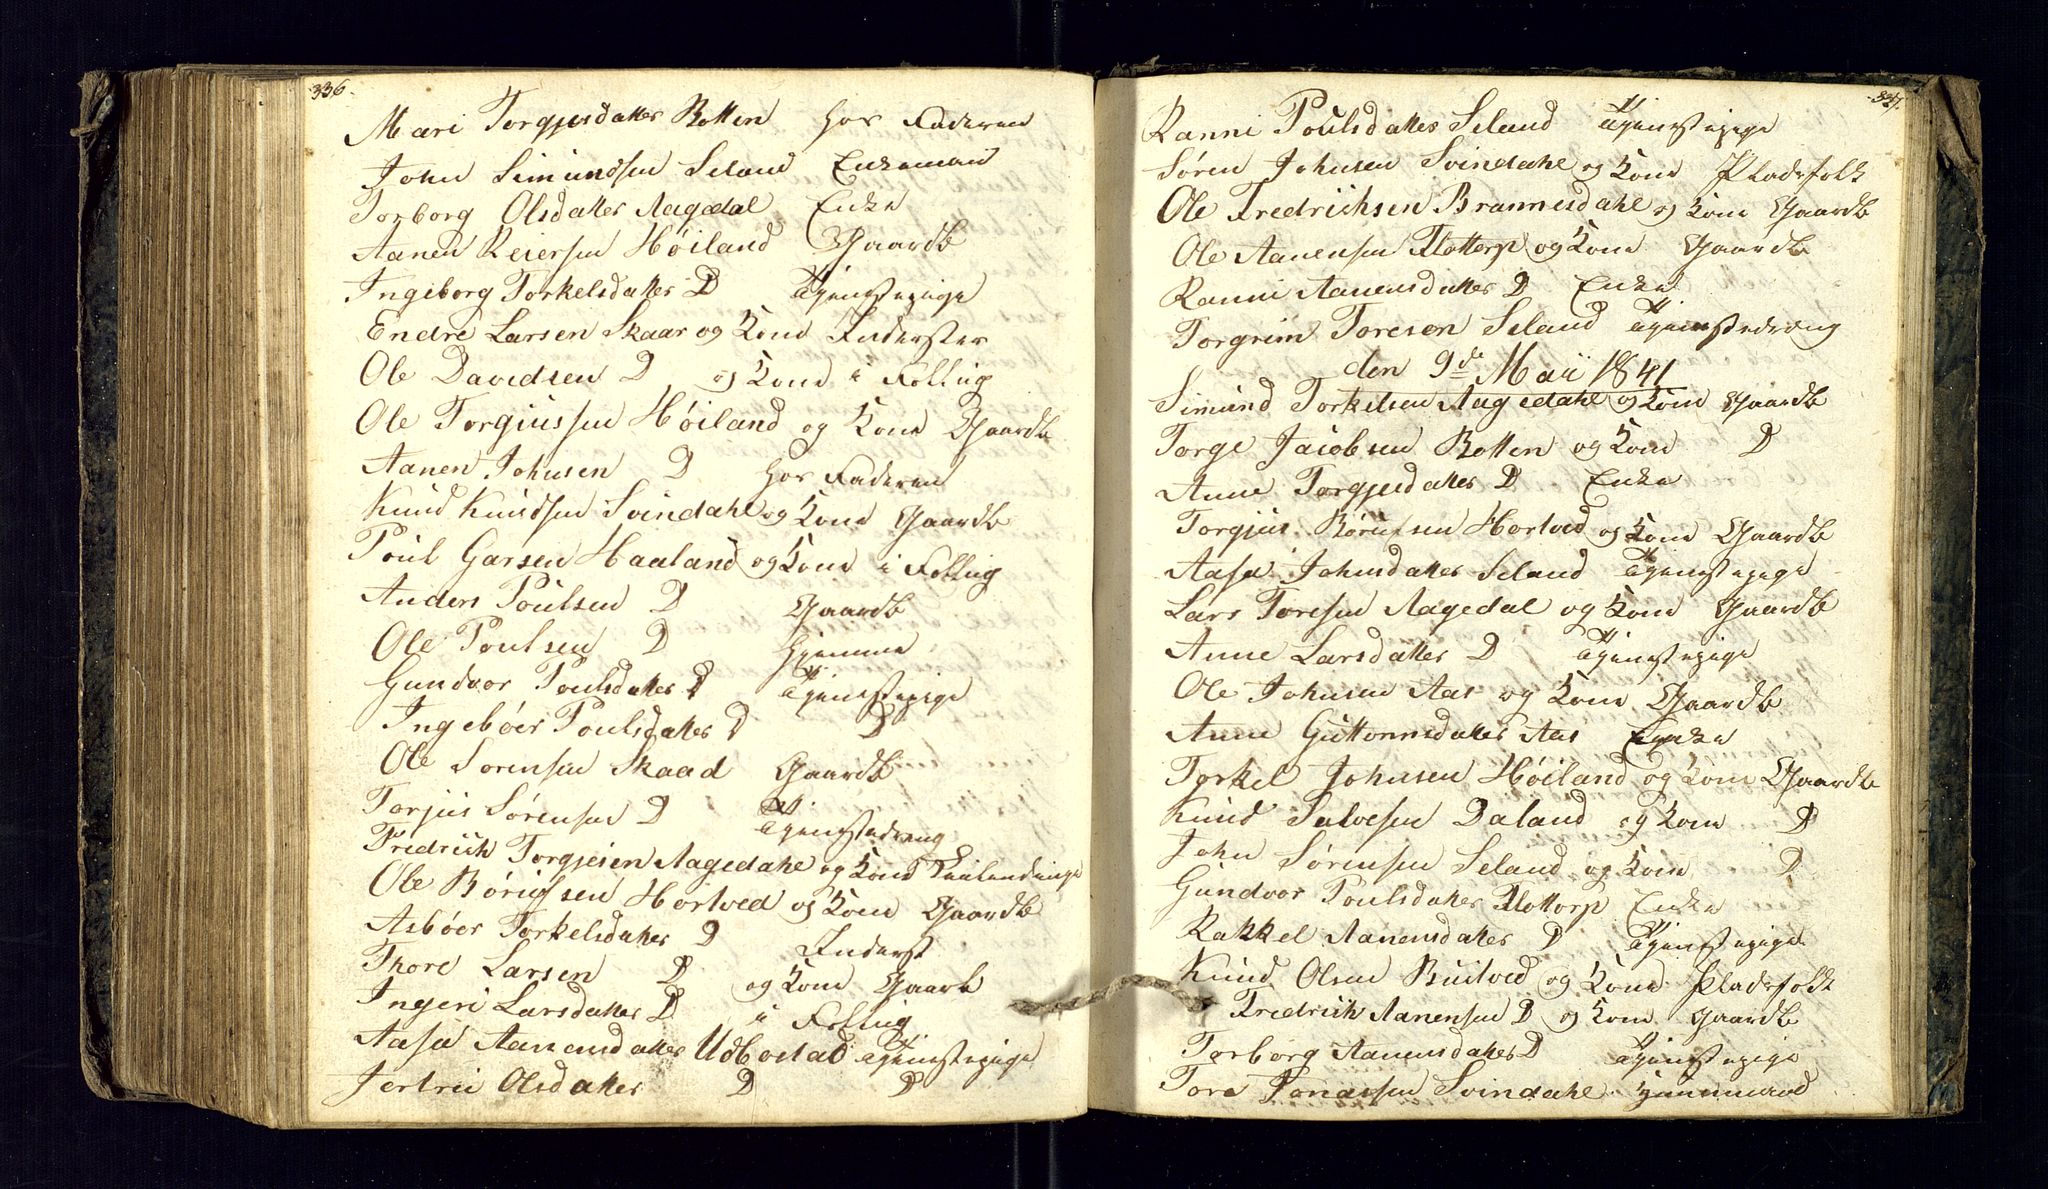 336.
Mari Torgjusdatter Botten hos Faderen
John Simundsen Seland Enkemand
Torborg Olsdatter Aagedal Enke
Aanen Reiersen Høiland Gaardb
Ingeborg Torkelsdatter D Tjenstepige
Endre Larsen Skaar og Kone Inderster
Ole Davidsen D og Kone i Følling
Ole Torgiussen Høiland og Kone Gaardb
Aanen Johnsen D hos Faderen
Knud Knudsen Svindahl og Kone Gaardb
Poul Garsen Haaland og Kone i Følling
Anders Poulsen D Gaardb
Ole Poulsen D hjemme
Gundvor Poulsdatter D Tjenstepige
Ingebøer Poulsdatter D D
Ole Sorensen Skaad Gaardb
Torjus Sørensen D Tjenstedreng
Fredrick Torgjesen Aagedahl og Kone
Ole Børufsen Hortved og Kone Gaardb
Asbøer Torkelsdatter D Inderst
Thore Larsen D og Kone Gaarb
Ingeri Larsdatter D i Følling
Aasa Aanensdatter Udbostad Tjenstepige
Jertrei Olsdatter D D
337.
Ranni Poulsdatter Seland Tjenstepige
Søren Johnsen Svindahl og Kone Pladsfolk
Ole Fredrichsen Brannesdahl og Kone Gaardb
Ole Aanensen Flottorp og Kone Gaardb
Ranni Aanensdatter D Enke
Torgrim Toresen Seland Tjenstedreng
den 9de Mai 1841
Simund Torkelsen Aagedahl og Kone Gaardb
Torge Jacobsen Botten og Kone D
Anne Torgjusdatter D Enke
Torgjus Børufsen Hortved og Kone Gaardb
Aasa Johnsdatter Seland Tjenstepige
Lars Toresen Aagedal og Kone Gaardb
Anne Larsdatter D Tjenstepige
Ole Johnsen Aas og Kone Gaardb
Anne Guttormsdatter Aas Enke
Torkel Johnsen Høiland og Kone Gaardb
Knud Salvesen Daland og Kone D
John Sørensen Seland og Kone D
Gundvor Poulsdatter Flottorp Enke
Rakkel Aanensdatter D Tjenstepige
Knud Olsen Buitved og Kone Pladsfolk
Fredrich Aanensen D og Kone Gaardb
Torborg Aanensdatter D Tjenstepige
Tore Tonassen Svindahl